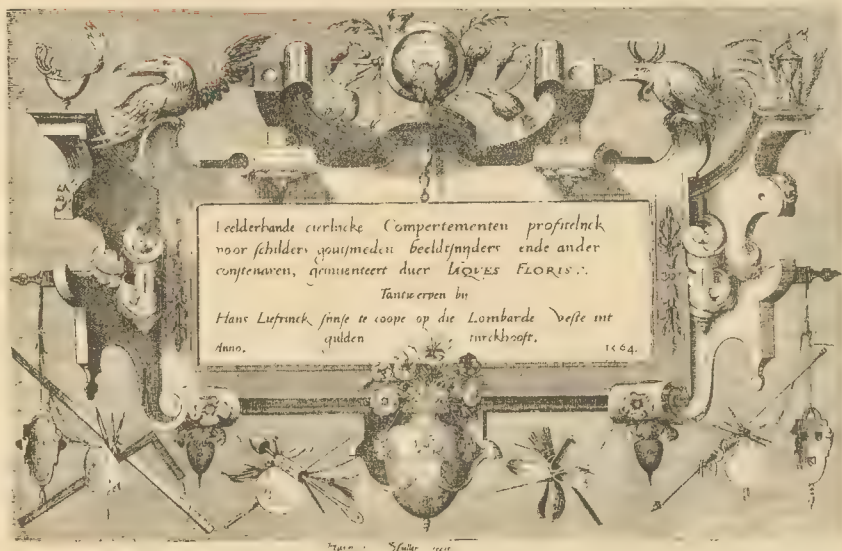 veelderhande cierlycke Compertementen profitelyck
voor schilders goutsmeden beeldtsnyders ende ander
constenaren, geinuenteert duer IAQVES FLORIS.
Tantwerpen by
Hans Liefrinck sijnse te coope op die Lombarde Veste int
gulden turckhooft.
Anno. 1564.